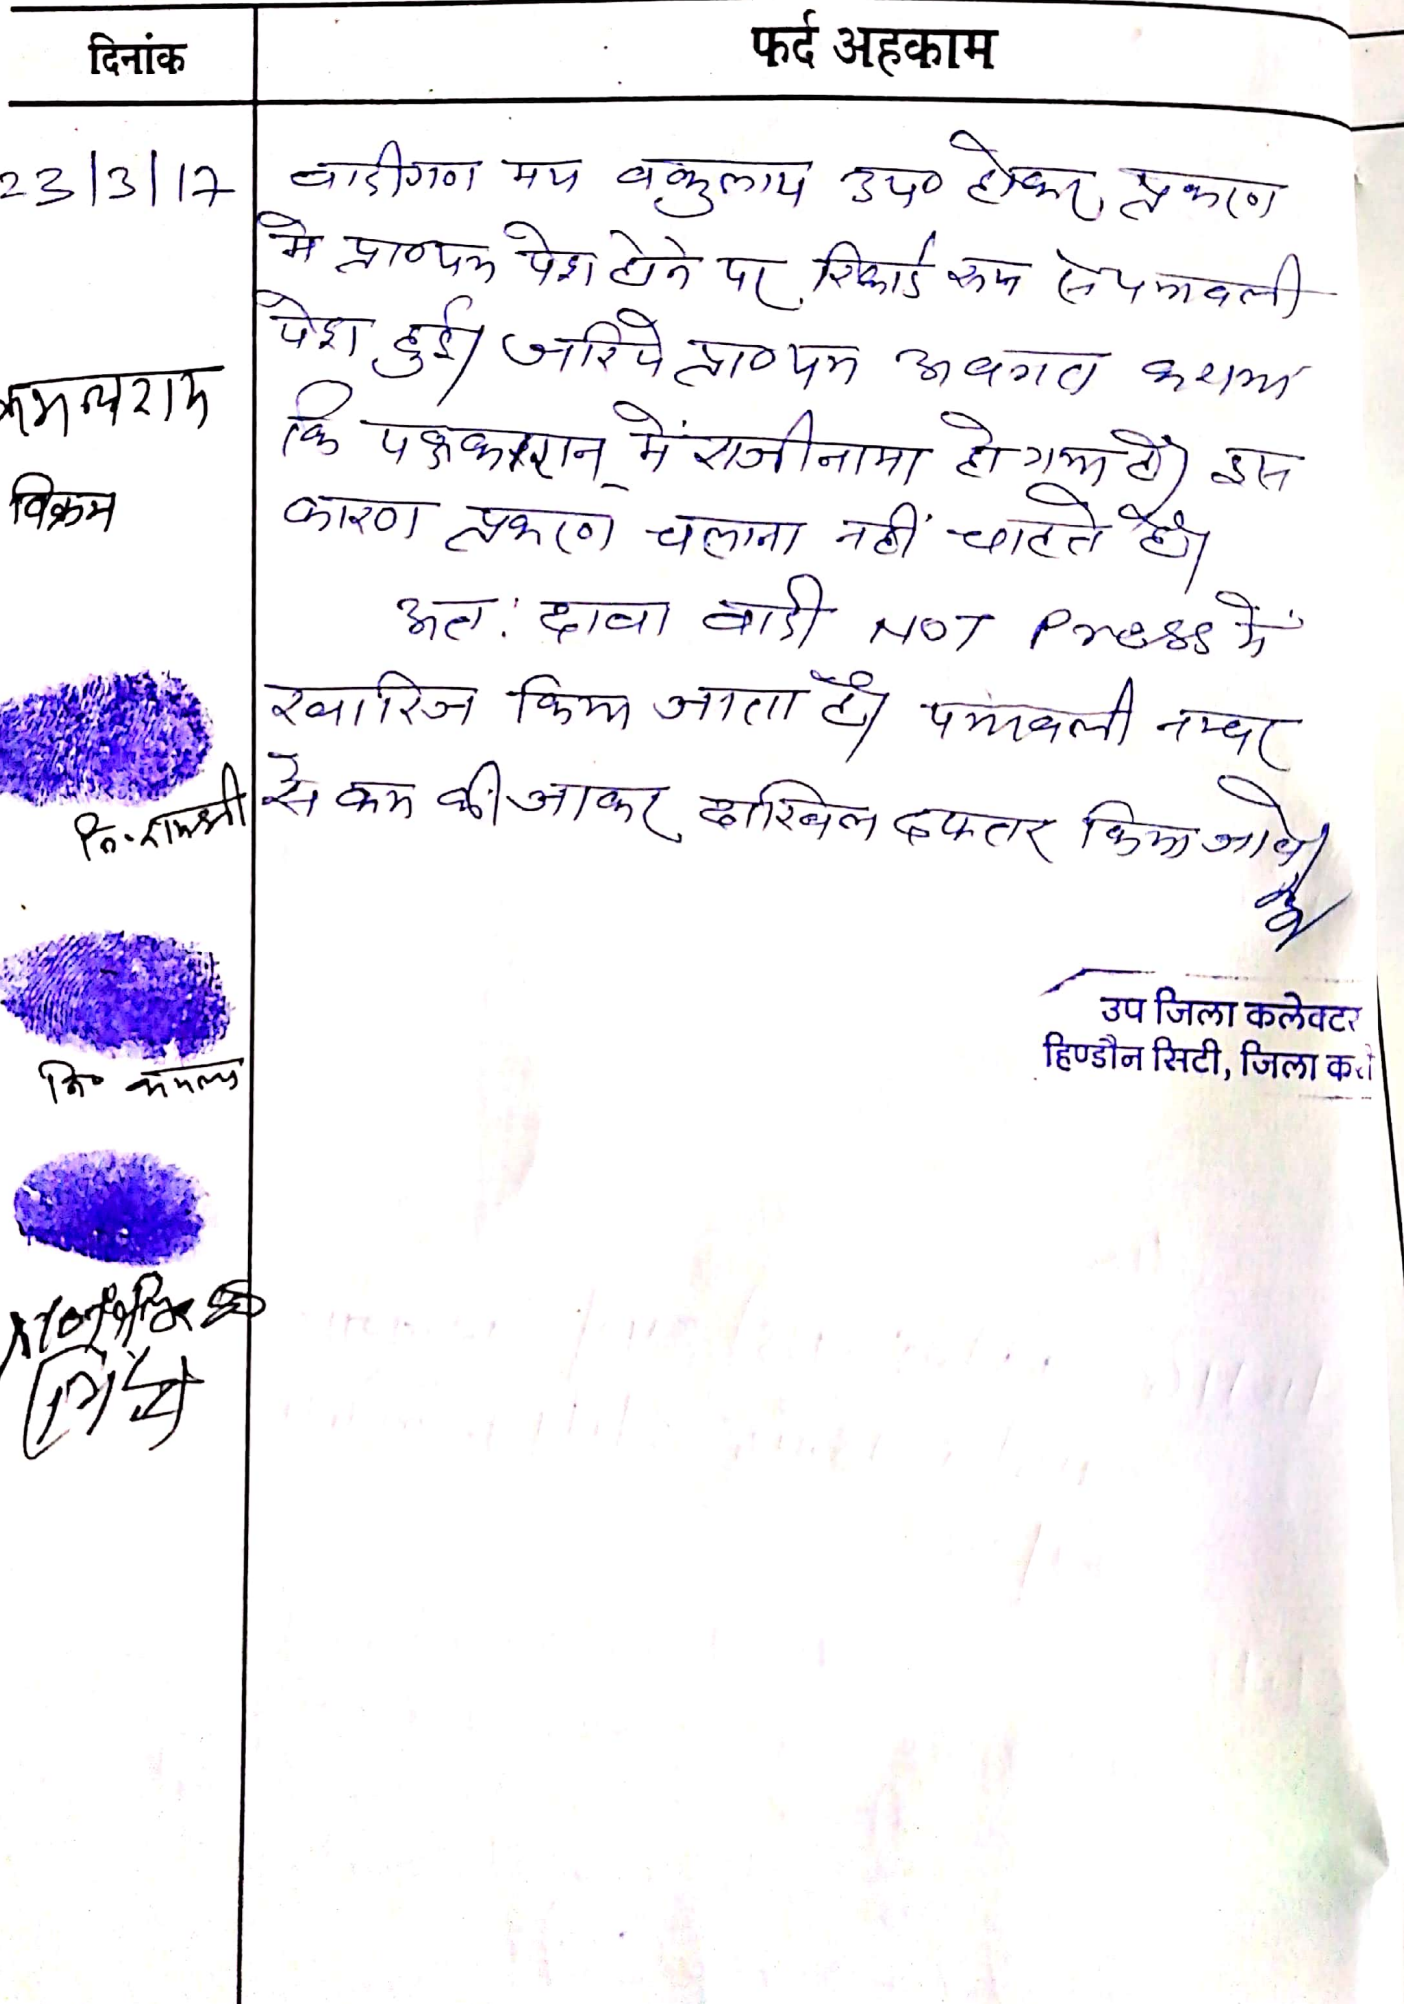 दिनांक
फर्द अहकाम
23/3/17
वादीगण मय वकुलाय उप० होकर प्रकरण
मे प्रा०पत्र पेश होने पर रिकार्ड रूम से पत्रावली
पेश हुई। जरिये प्रा०पत्र अवगत कराया
कि पक्षकारान् में राजीनामा हो गया है। इस
कारण प्रकरण चलाना नहीं चाहते है।
अतः दावा वादी NOT Press में
खारिज किया जाता है। पत्रावली नम्बर
से कम की जाकर दाखिल दफ्तर किया जावे।
विक्रम
नि. रामश्री
नि० कमला
उप जिला कलेक्टर
हिण्डौन सिटी, जिला करौ